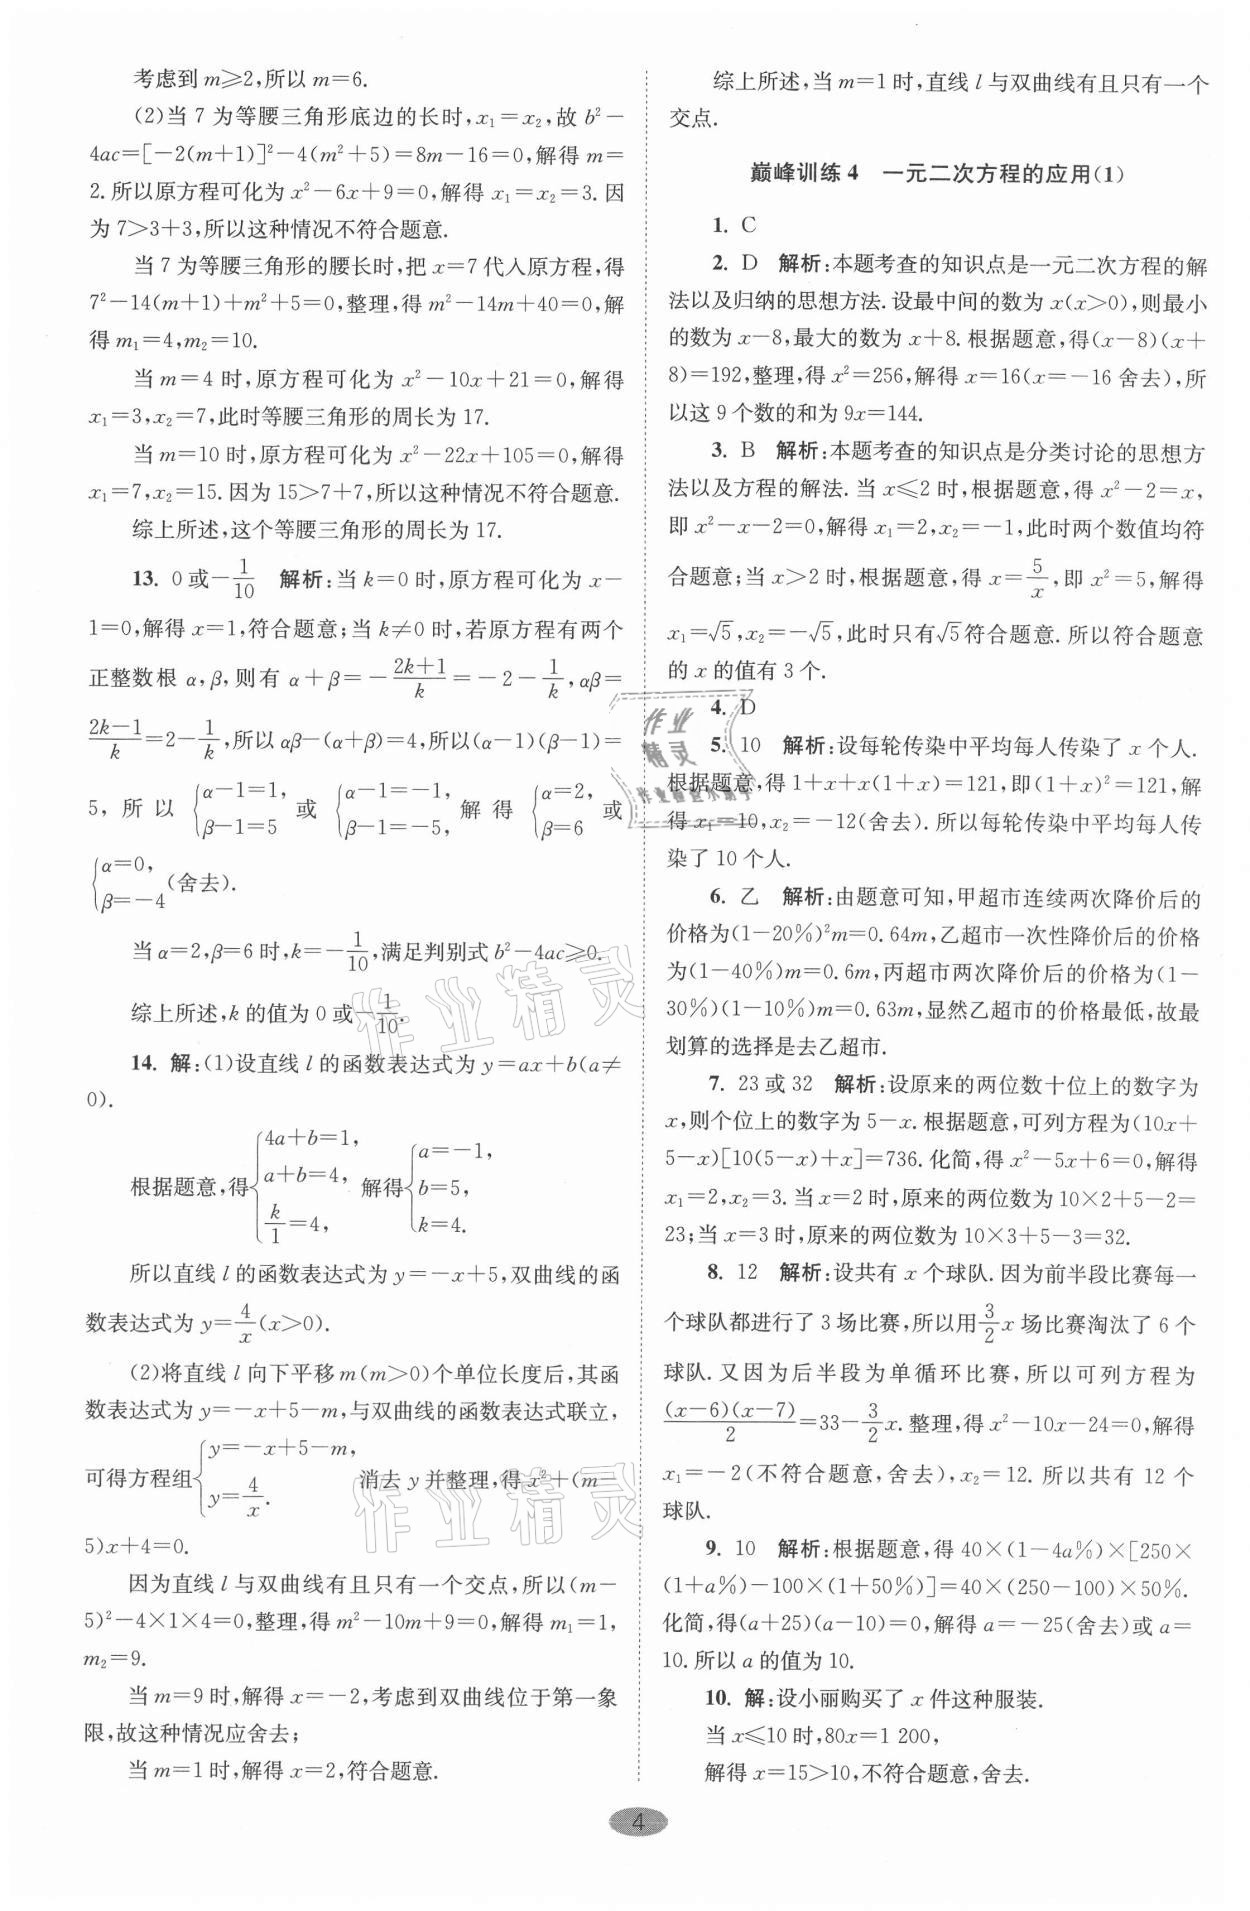 考虑到 m≥2,所以 m=6.
(2)当 7 为等腰三角形底边的长时,x₁=x₂,故 b²-
4ac=[-2(m+1)]²-4(m²+5)=8m-16=0,解得 m=
2.所以原方程可化为 x²-6x+9=0,解得 x₁=x₂=3.因
为 7>3+3,所以这种情况不符合题意.
当 7 为等腰三角形的腰长时,把 x=7 代入原方程,得
7²-14(m+1)+m²+5=0,整理,得 m²-14m+40=0,解
得 m₁=4,m₂=10.
当 m=4 时,原方程可化为 x²-10x+21=0,解得
x₁=3,x₂=7,此时等腰三角形的周长为 17.
当 m=10 时,原方程可化为 x²-22x+105=0,解得
x₁=7,x₂=15.因为 15>7+7,所以这种情况不符合题意.
综上所述,这个等腰三角形的周长为 17.
13. 0 或-1/10 解析:当 k=0 时,原方程可化为 x-
1=0,解得 x=1,符合题意;当 k≠0 时,若原方程有两个
正整数根 α,β,则有 α+β=-(2k+1)/k=-2-1/k,αβ=
(2k-1)/k=2-1/k,所以 αβ-(α+β)=4,所以(α-1)(β-1)=
5,所以{α-1=1,β-1=5 或{α-1=-1,β-1=-5,解得{α=2,β=6 或
{α=0,β=-4(舍去).
当 α=2,β=6 时,k=-1/10,满足判别式 b²-4ac≥0.
综上所述,k 的值为 0 或-1/10.
14. 解:(1)设直线 l 的函数表达式为 y=ax+b(a≠
0).
根据题意,得{4a+b=1,a+b=4,k/1=4,解得{a=-1,b=5,k=4.
所以直线 l 的函数表达式为 y=-x+5,双曲线的函
数表达式为 y=4/x(x>0).
(2)将直线 l 向下平移 m(m>0)个单位长度后,其函
数表达式为 y=-x+5-m,与双曲线的函数表达式联立,
可得方程组{y=-x+5-m,y=4/x. 消去 y 并整理,得 x²+(m-
5)x+4=0.
因为直线 l 与双曲线有且只有一个交点,所以(m-
5)²-4×1×4=0,整理,得 m²-10m+9=0,解得 m₁=1,
m₂=9.
当 m=9 时,解得 x=-2,考虑到双曲线位于第一象
限,故这种情况应舍去;
当 m=1 时,解得 x=2,符合题意.
综上所述,当 m=1 时,直线 l 与双曲线有且只有一个
交点.
巅峰训练 4 一元二次方程的应用(1)
1. C
2. D 解析:本题考查的知识点是一元二次方程的解
法以及归纳的思想方法.设最中间的数为 x(x>0),则最小
的数为 x-8,最大的数为 x+8.根据题意,得(x-8)(x+
8)=192,整理,得 x²=256,解得 x=16(x=-16 舍去),所
以这 9 个数的和为 9x=144.
3. B 解析:本题考查的知识点是分类讨论的思想方
法以及方程的解法.当 x≤2 时,根据题意,得 x²-2=x,
即 x²-x-2=0,解得 x₁=2,x₂=-1,此时两个数值均符
合题意;当 x>2 时,根据题意,得 x=5/x,即 x²=5,解得
x₁=√5,x₂=-√5,此时只有√5符合题意.所以符合题意
的 x 的值有 3 个.
4. D
5. 10 解析:设每轮传染中平均每人传染了 x 个人.
根据题意,得 1+x+x(1+x)=121,即(1+x)²=121,解
得 x₁=10,x₂=-12(舍去).所以每轮传染中平均每人传
染了 10 个人.
6. 乙 解析:由题意可知,甲超市连续两次降价后的
价格为(1-20%)²m=0.64m,乙超市一次性降价后的价格
为(1-40%)m=0.6m,丙超市两次降价后的价格为(1-
30%)(1-10%)m=0.63m,显然乙超市的价格最低,故最
划算的选择是去乙超市.
7. 23 或 32 解析:设原来的两位数十位上的数字为
x,则个位上的数字为 5-x.根据题意,可列方程为(10x+
5-x)[10(5-x)+x]=736.化简,得 x²-5x+6=0,解得
x₁=2,x₂=3.当 x=2 时,原来的两位数为 10×2+5-2=
23;当 x=3 时,原来的两位数为 10×3+5-3=32.
8. 12 解析:设共有 x 个球队.因为前半段比赛每一
个球队都进行了 3 场比赛,所以用3/2x 场比赛淘汰了 6 个
球队.又因为后半段为单循环比赛,所以可列方程为
(x-6)(x-7)/2=33-3/2x.整理,得 x²-10x-24=0,解得
x₁=-2(不符合题意,舍去),x₂=12.所以共有 12 个
球队.
9. 10 解析:根据题意,得 40×(1-4a%)×[250×
(1+a%)-100×(1+50%)]=40×(250-100)×50%.
化简,得(a+25)(a-10)=0,解得 a=-25(舍去)或 a=
10.所以 a 的值为 10.
10. 解:设小丽购买了 x 件这种服装.
当 x≤10 时,80x=1 200,
解得 x=15>10,不符合题意,舍去.
4
作业精灵
作业精灵
作业
精灵